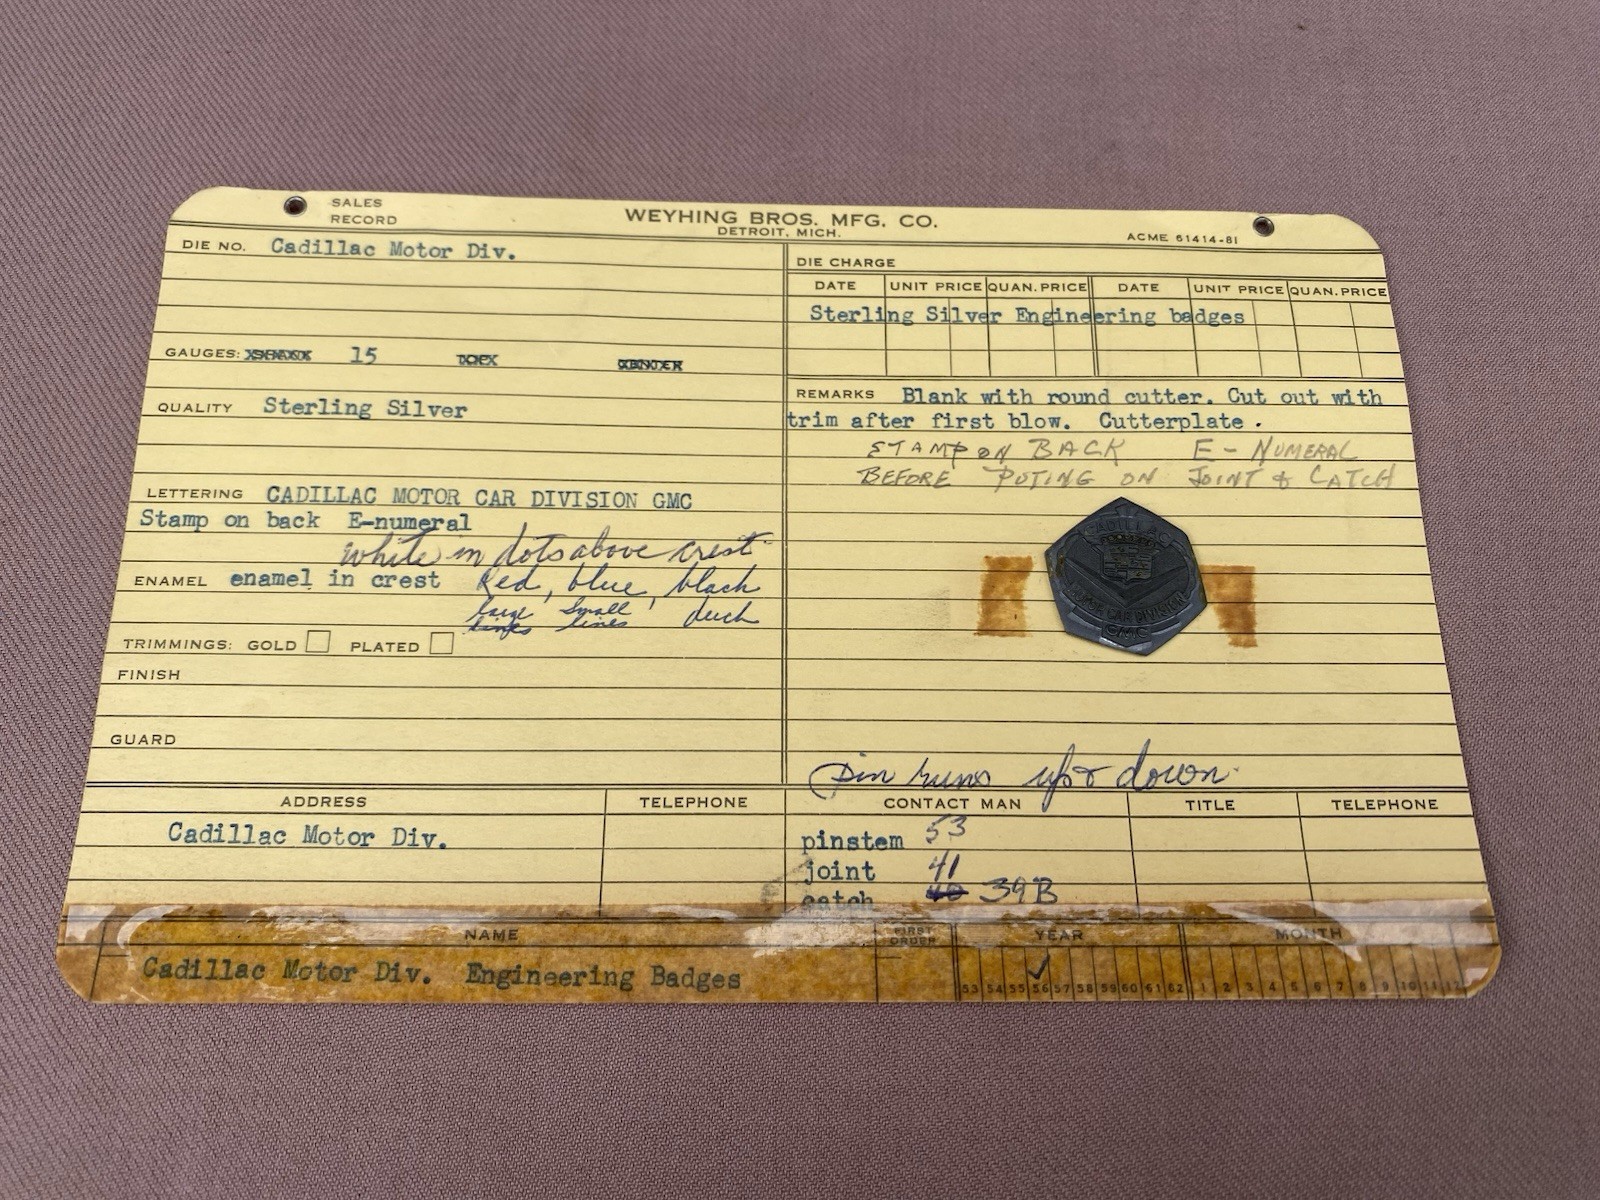 SALES
RECORD
WEYHING BROS. MFG. CO.
DETROIT, MICH.
ACME 61414-81
DIE NO. Cadillac Motor Div.
GAUGES: 15
QUALITY Sterling Silver
LETTERING CADILLAC MOTOR CAR DIVISION GMC
Stamp on back E-numeral
white in dots above crest
ENAMEL enamel in crest Red, blue, black
large small duck
lines lines
TRIMMINGS: GOLD PLATED
FINISH
GUARD
DIE CHARGE
DATE UNIT PRICE QUAN. PRICE DATE UNIT PRICE QUAN. PRICE
Sterling Silver Engineering badges
REMARKS Blank with round cutter. Cut out with
trim after first blow. Cutterplate.
STAMP ON BACK E - NUMERAL
BEFORE PUTING ON JOINT & CATCH
CADILLAC
MOTOR CAR DIVISION
GMC
Pin runs up & down
ADDRESS TELEPHONE CONTACT MAN TITLE TELEPHONE
Cadillac Motor Div.
pinstem 53
joint 41
catch 40 39B
NAME FIRST ORDER YEAR MONTH
Cadillac Motor Div. Engineering Badges
53 54 55 56 57 58 59 60 61 62 1 2 3 4 5 6 7 8 9 10 11 12